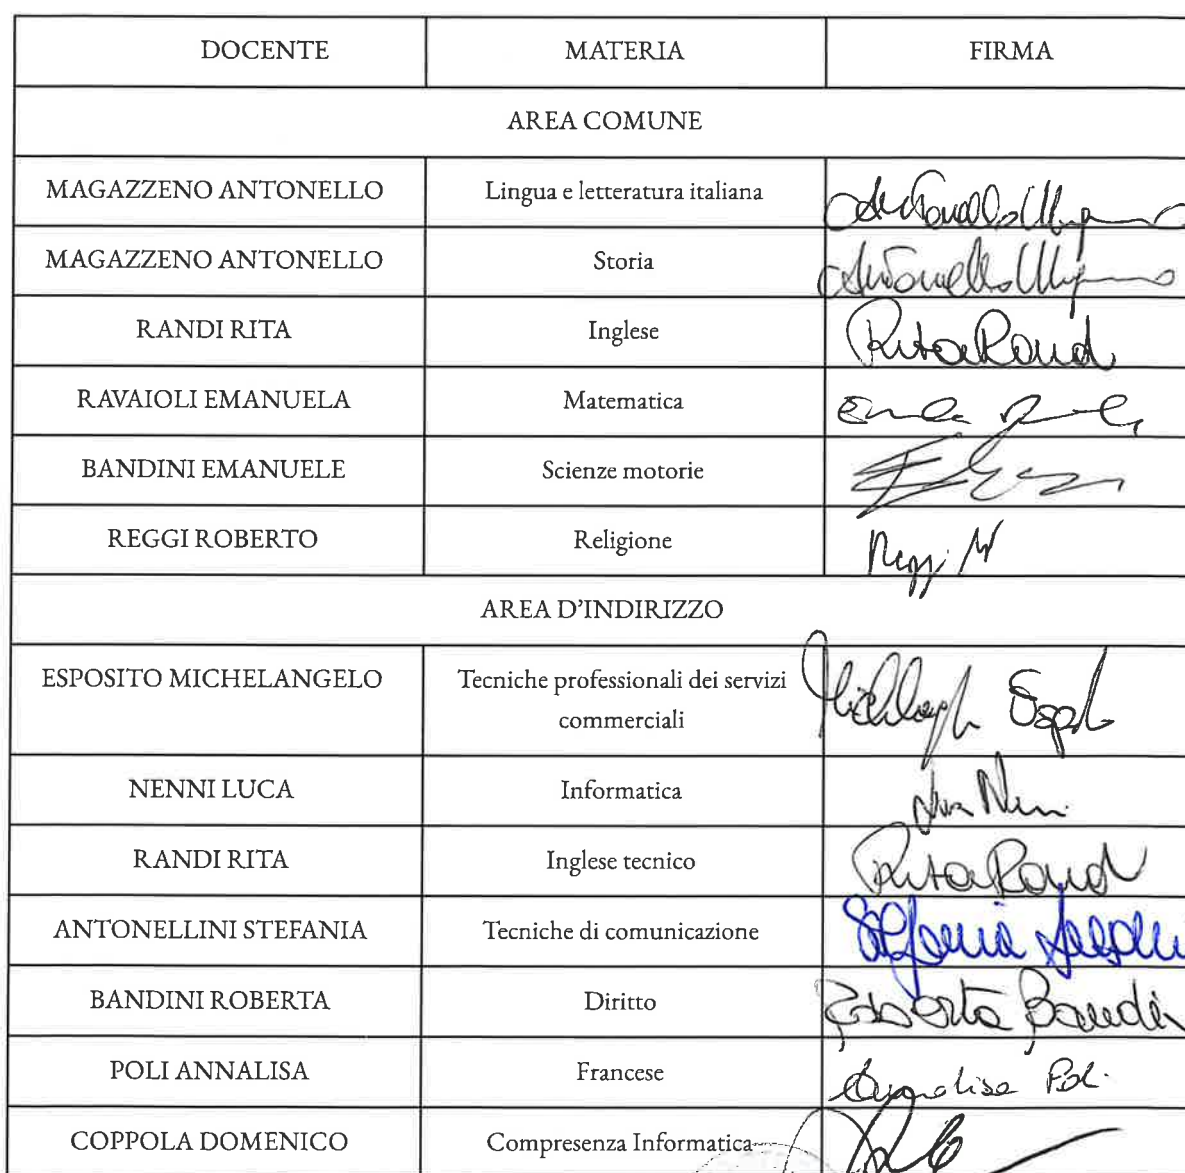 DOCENTE MATERIA FIRMA
AREA COMUNE
MAGAZZENO ANTONELLO Lingua e letteratura italiana Antonello
MAGAZZENO ANTONELLO Storia Antonello
RANDI RITA Inglese Rita Randi
RAVAIOLI EMANUELA Matematica
BANDINI EMANUELE Scienze motorie
REGGI ROBERTO Religione Reggi
AREA D'INDIRIZZO
ESPOSITO MICHELANGELO Tecniche professionali dei servizi
commerciali
NENNI LUCA Informatica
RANDI RITA Inglese tecnico Rita Randi
ANTONELLINI STEFANIA Tecniche di comunicazione Stefania
BANDINI ROBERTA Diritto Roberta Bandini
POLI ANNALISA Francese Annalisa Poli
COPPOLA DOMENICO Compresenza Informatica